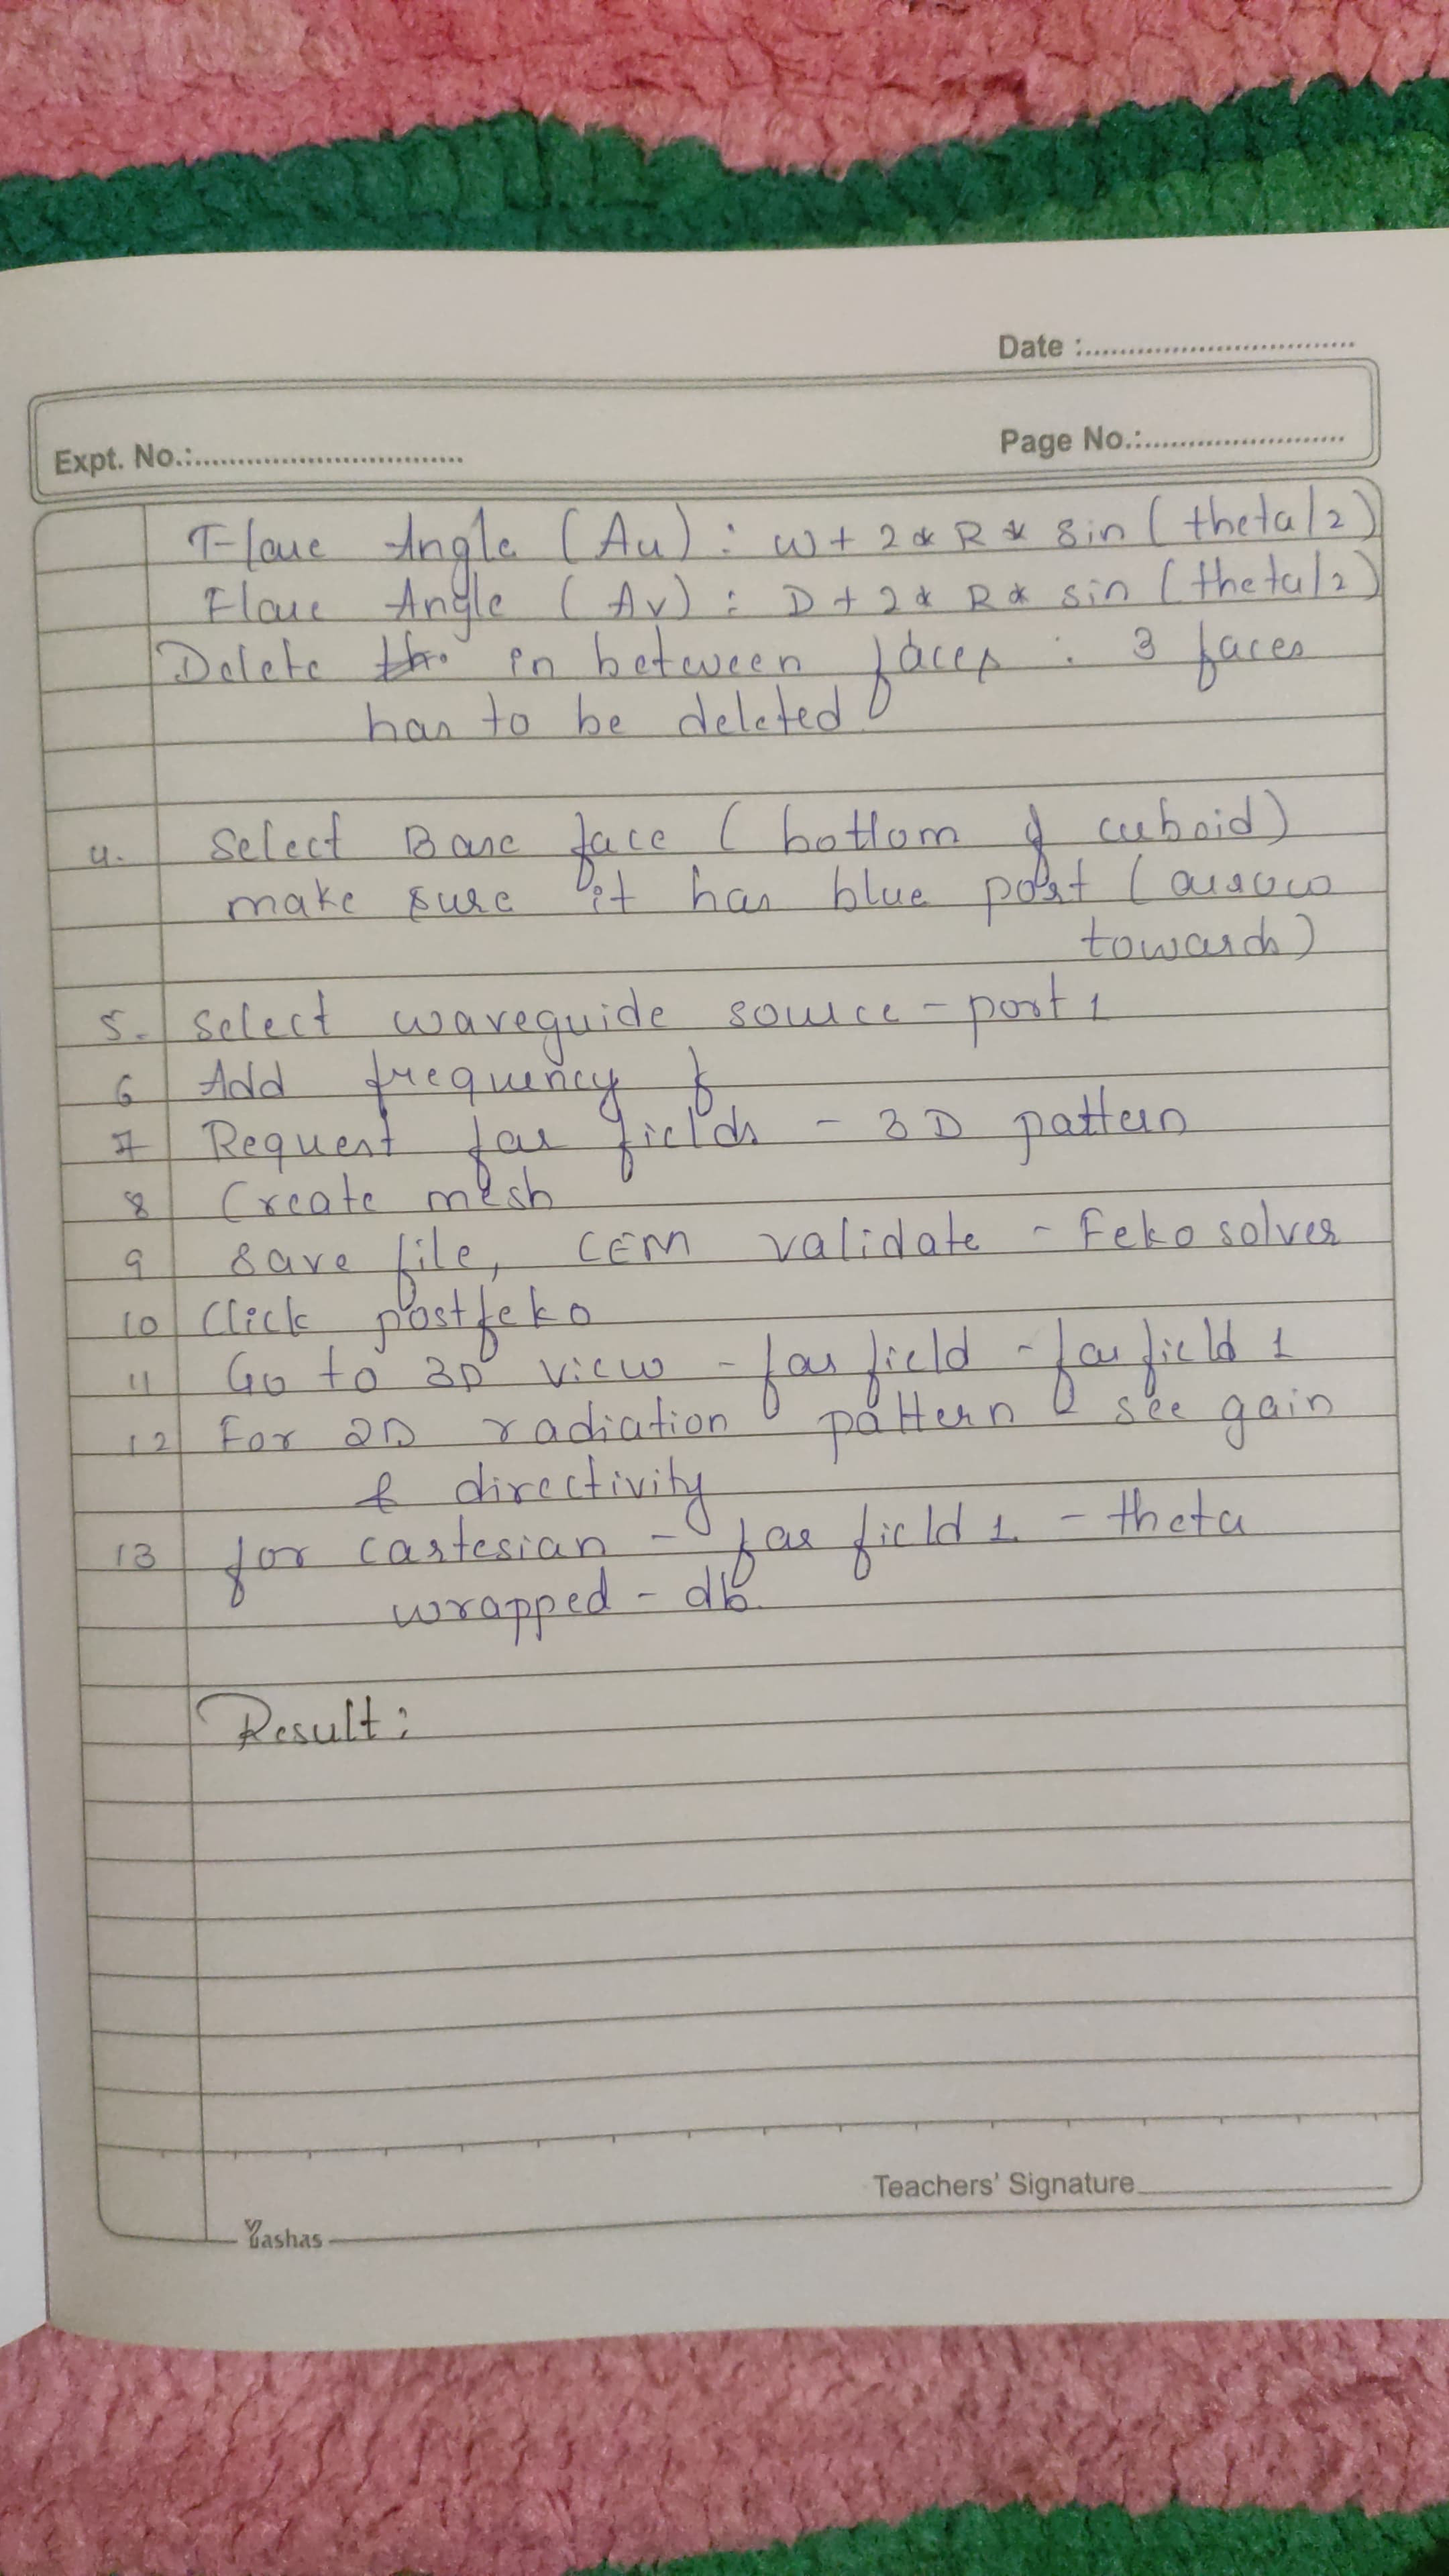 Date :
Expt. No.:
Page No.:
Flare Angle (Au) : W + 2 * R * sin (theta/2)
Flare Angle (Av) : D + 2 * R * sin (theta/2)
Delete in between faces : 3 faces
has to be deleted
4. Select Base face ( bottom of cuboid)
make sure it has blue port ( arrow
towards)
5. Select waveguide source - port 1
6 Add frequency f
7 Request far fields - 3D pattern
8 Create mesh
9 Save file, CEM validate - Feko solver
10 Click postfeko
11 Go to 3D view - far field - far field 1
12 For 2D radiation pattern - see gain
& directivity
13 for cartesian - far field 1. - theta
wrapped - db.
Result :
Teachers' Signature
Yashas